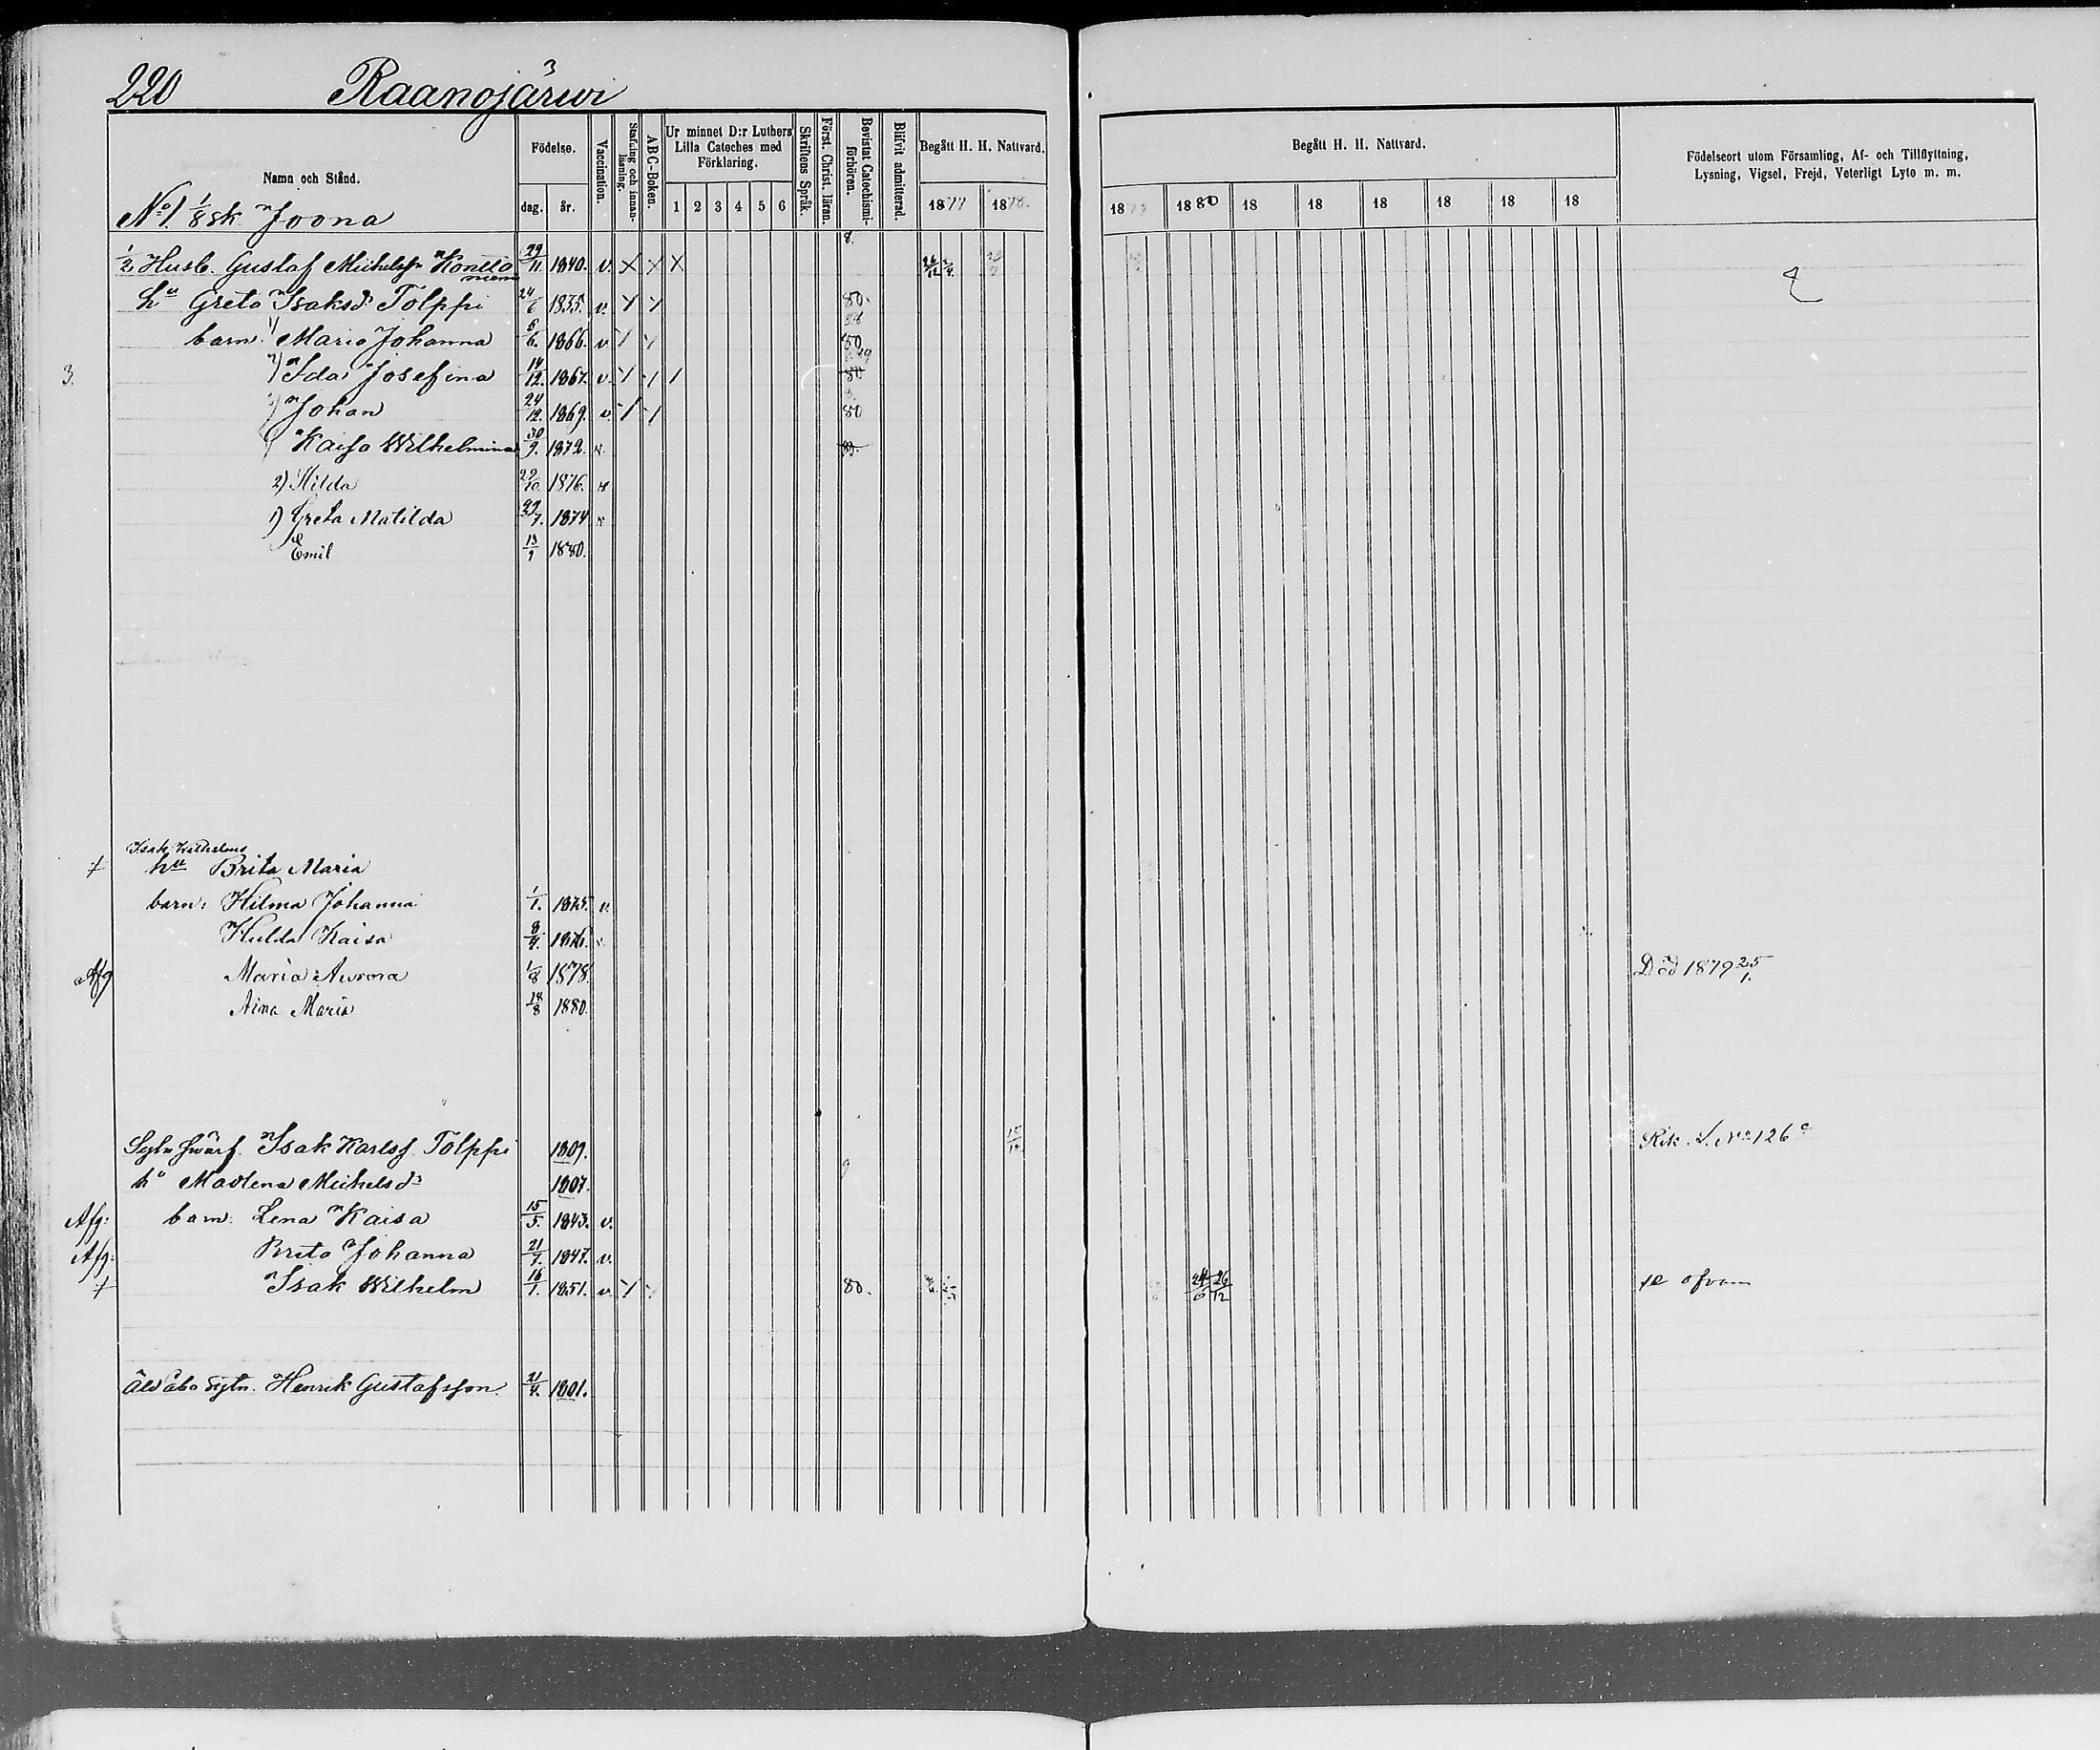 220 Raanojärwi
Namn och Stånd.
Födelse.
dag.
år.
Vaccination.
Stafning och innan-läsning.
ABC-Boken.
Ur minnet D:r Luthers Lilla Cateches med Förklaring.
1 2 3 4 5 6
Skriftens Språk.
Först. Christ. läran.
Bevistat Catechismi-förhören.
Blifvit admitterad.
Begått H. H. Nattvard.
1877 1878.
Begått H. H. Nattvard.
1879 1880 18 18 18 18 18 18
Födelseort utom Församling, Af- och Tillflyttning,
Lysning, Vigsel, Frejd, Veterligt Lyte m. m.
No 1. 1/8 sk. Joona
8.
1/2 Husb. Gustaf Michelss:n Kontto 29/11. 1840. v. X X X 26/12 2/4.
niemi
hu Greta Isaksd:r Tolppi 24/6 1835. v. 80.
barn: 1) Maria Johanna 8/6. 1866. v 80
3. 2) Ida Josefina 14/12. 1867. v. 80
3) Johan 24/12. 1869. v. 80
Kaisa Wilhelmina 30/9. 1872. v. 80.
2) Hilda 29/10. 1876. v
1) Greta Matilda 29/7. 1874 v
Emil 13/9 1880.
Isak Wilhelms
+ hu Brita Maria
barn: Hilma Johanna 1/1. 1875. v.
Hulda Kaisa 8/4. 1876. v.
Afg Maria Aurora 1/8 1878. Död 1879 25/1.
Aina Maria 18/8 1880.
Sytn. Swärf. Isak Karlss. Tolppi 1809. Risk. S. No. 126
hu Madlena Michelsd:r 1807.
Afg: barn: Lena Kaisa 15/5. 1843. v.
Afg: Brita Johanna 21/7. 1847. v.
+ Isak Wilhelm 16/1. 1851. v. 80. 24/6 26/12 se ofvan
Åld åbo sytn. Henrik Gustafsson. 21/4. 1801.